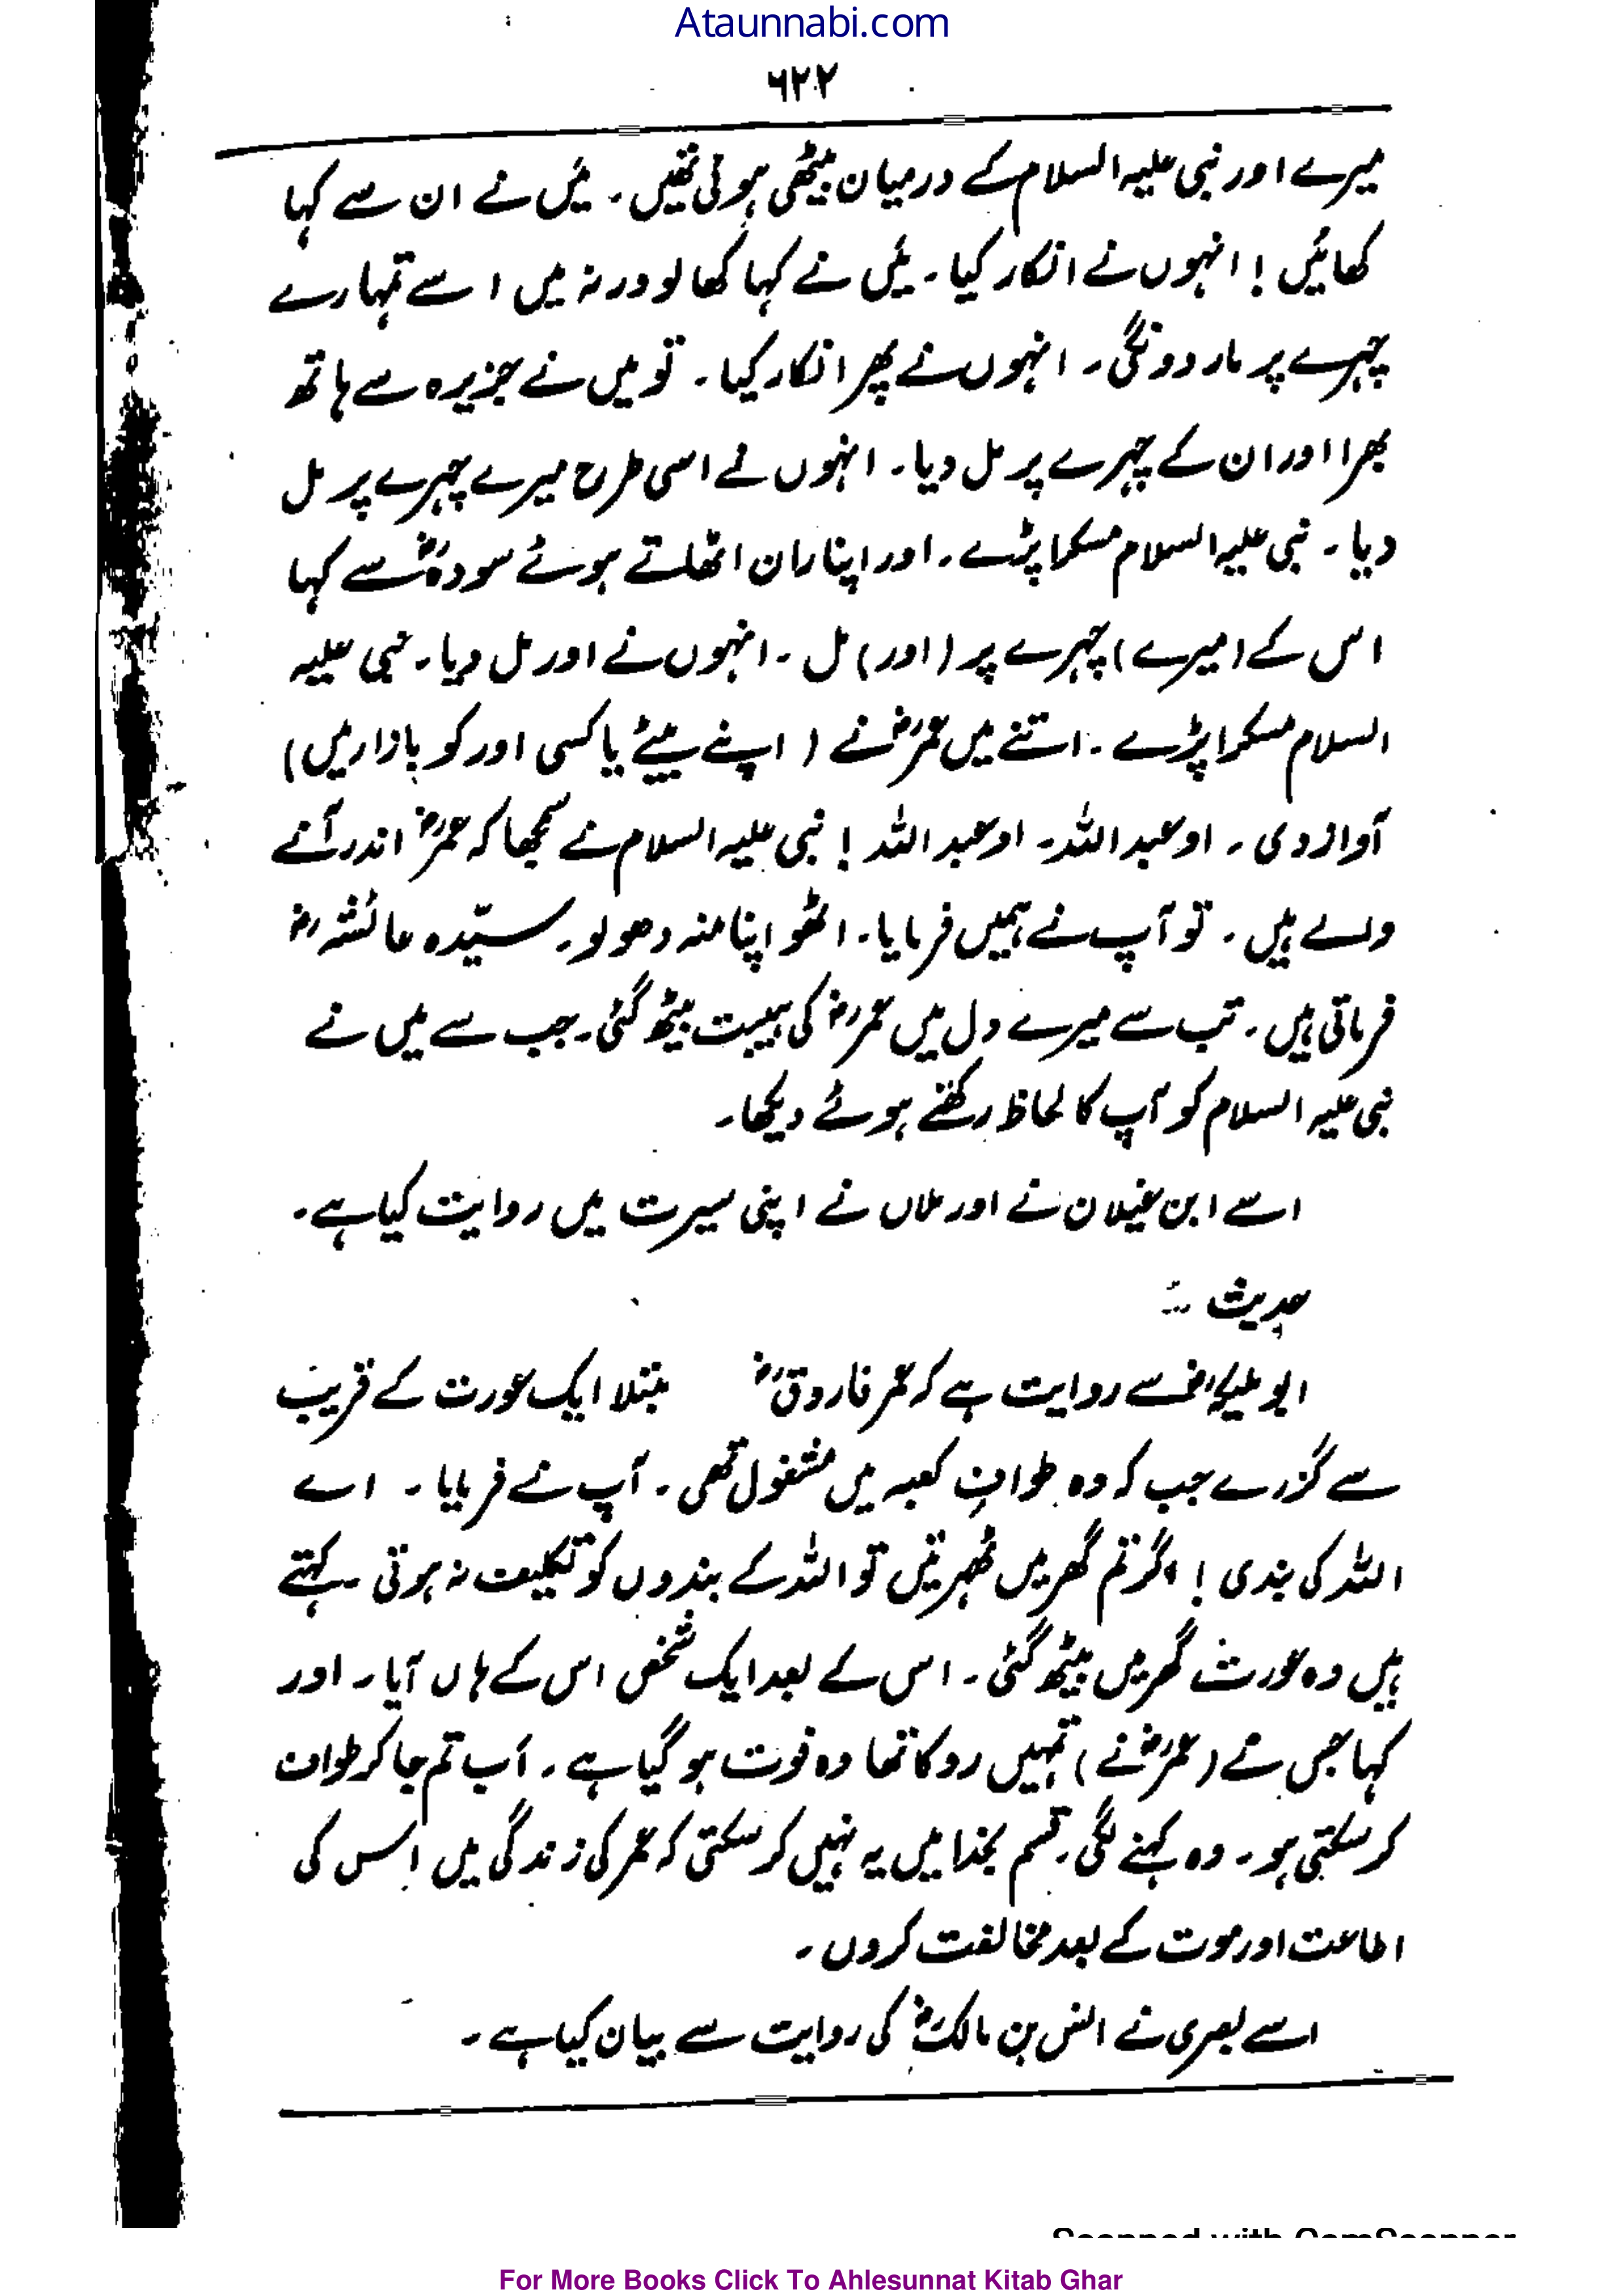 Ataunnabi.com
٦٢٢
میرے اور نبی علیہ السلام کے درمیان بیٹھی ہوئی تھیں۔ میں نے ان سے کہا
کھائیں! انہوں نے انکار کیا۔ میں نے کہا کھا لو ورنہ میں اسے تمہارے
چہرے پر مار دونگی۔ انہوں نے پھر انکار کیا۔ تو میں نے جزیرہ سے ہاتھ
بھرا اور ان کے چہرے پر مل دیا۔ انہوں نے اسی طرح میرے چہرے پر مل
دیا۔ نبی علیہ السلام مسکرا پڑے۔ اور اپنا ران اٹھاتے ہوئے سودہؓ سے کہا
اس کے (میرے) چہرے پر (اور) مل۔ انہوں نے اور مل دیا۔ نبی علیہ
السلام مسکرا پڑے۔ اتنے میں عمرؓ نے (اپنے بیٹے یا کسی اور کو بازار میں)
آواز دی۔ او عبداللہ۔ او عبداللہ! نبی علیہ السلام نے سمجھا کہ عمرؓ اندر آنے
والے ہیں۔ تو آپ نے ہمیں فرمایا۔ اٹھو اپنا منہ دھو لو۔ سیّدہ عائشہؓ
فرماتی ہیں۔ تب سے میرے دل میں عمرؓ کی ہیبت بیٹھ گئی۔ جب سے میں نے
نبی علیہ السلام کو آپ کا لحاظ رکھتے ہوئے دیکھا۔
اسے ابن غیلان نے اور ملاں نے اپنی سیرت میں روایت کیا ہے۔
حدیث :-
ابو ملیکہؓ سے روایت ہے کہ عمر فاروقؓ مبتلا ایک عورت کے قریب
سے گزرے جب کہ وہ طوافِ کعبہ میں مشغول تھی۔ آپ نے فرمایا۔ اے
اللہ کی بندی! اگر تم گھر میں ٹھہرتیں تو اللہ کے بندوں کو تکلیف نہ ہوتی۔ کہتے
ہیں وہ عورت گھر میں بیٹھ گئی۔ اس کے بعد ایک شخص اس کے ہاں آیا۔ اور
کہا جس نے (عمرؓ نے) تمہیں روکا تھا وہ فوت ہو گیا ہے۔ اب تم جا کر طواف
کر سکتی ہو۔ وہ کہنے لگی۔ قسم بخدا میں یہ نہیں کر سکتی کہ عمر کی زندگی میں اس کی
اطاعت اور موت کے بعد مخالفت کروں۔
اسے بصری نے انس بن مالکؓ کی روایت سے بیان کیا ہے۔
Scanned with CamScanner
For More Books Click To Ahlesunnat Kitab Ghar